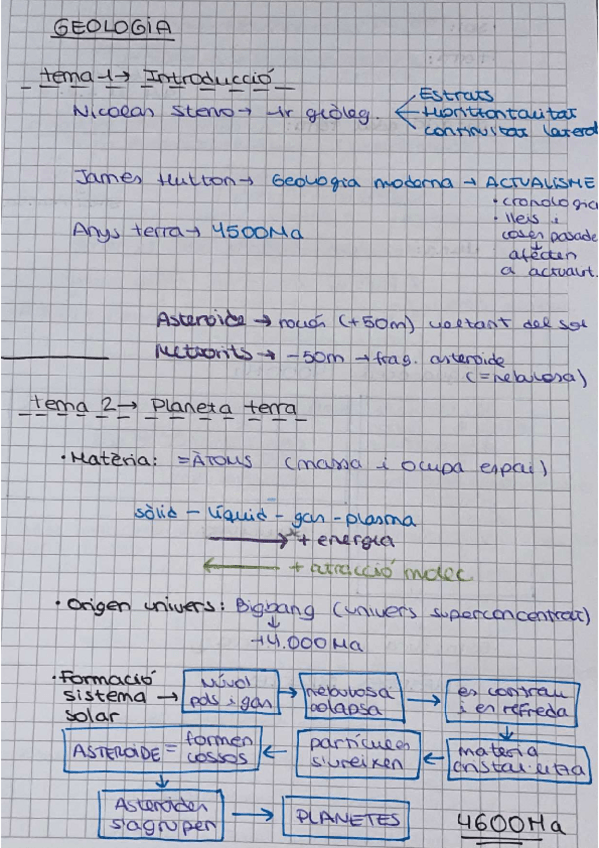 GEOLOGIA
tema 1 → Introducció
Nicolas Steno → 1r geòleg.
Estrats
Horitzontalitat
continuitat lateral
James Hutton → Geologia moderna → ACTUALISME
• cronologia
• lleis i
coses pasade
afecten
a actualit.
Anys terra → 4500Ma
Asteroide → rocós (+50m) voltant del sol
Meteorits → -50m → frag. asteroide
(= nebulosa)
tema 2 → Planeta terra
• Matèria: = ÀTOMS (massa i ocupa espai)
sòlid - líquid - gas - plasma
+ energia
+ atracció molec.
• Origen univers: Bigbang (univers superconcentrat)
↓
14.000Ma
• Formació
sistema →
solar
Núvol
pols i gas →
nebulosa
colapsa →
es contrau
i es refreda
↓
materia
cristal·litza
←
partícules
s'uneixen
←
ASTEROIDE = formen
cossos
↓
Asteroides
s'agrupen →
PLANETES
4600Ma